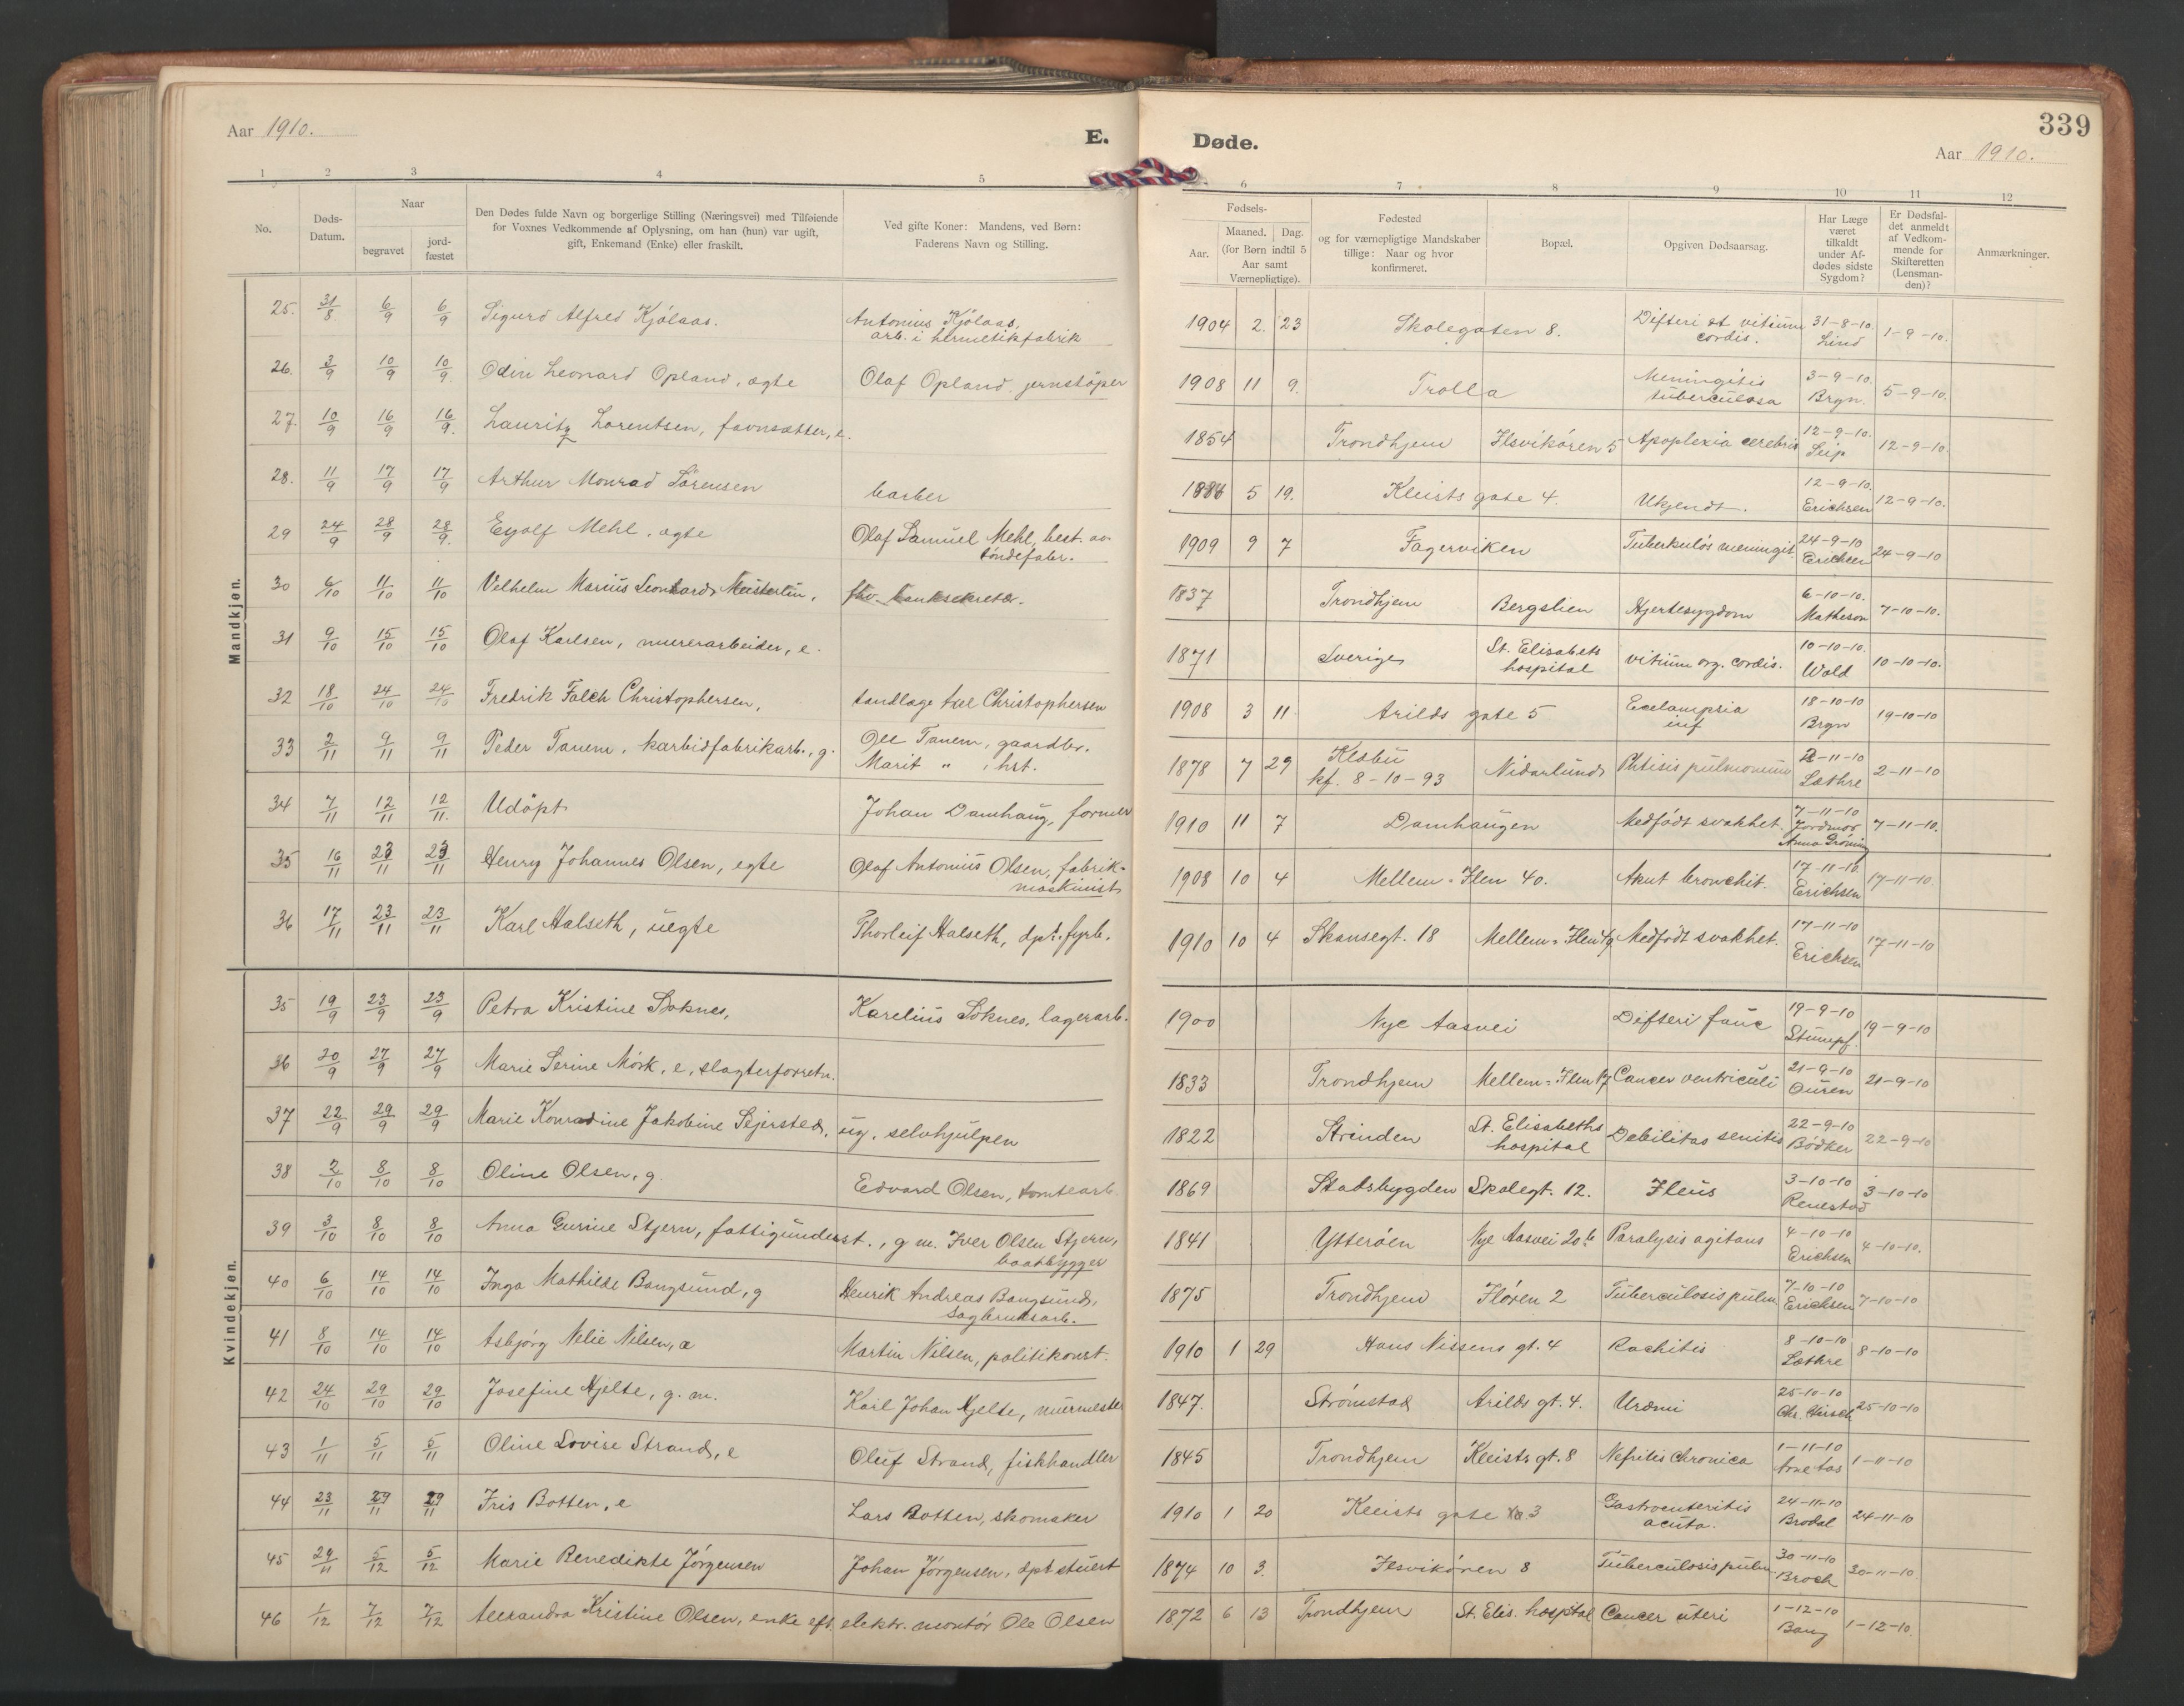 Aar 1910.
E.
Døde.
339
Aar 1910.
1 2 3 4 5 6 7 8 9 10 11 12
No.
Døds-Datum.
Naar
begravet
jord-fæstet
Den Dødes fulde Navn og borgerlige Stilling (Næringsvei) med Tilføiende
for Voxnes Vedkommende af Oplysning, om han (hun) var ugift,
gift, Enkemand (Enke) eller fraskilt.
Ved gifte Koner: Mandens, ved Børn:
Faderens Navn og Stilling.
Fødsels-
Aar.
Maaned. Dag.
(for Børn indtil 5
Aar samt
Værnepligtige).
Fødested
og for værnepligtige Mandskaber
tillige: Naar og hvor
konfirmeret.
Bopæl.
Opgiven Dødsaarsag.
Har Læge
været
tilkaldt
under Af-
dødes sidste
Sygdom?
Er Dødsfal-
det anmeldt
af Vedkom-
mende for
Skifteretten
(Lensman-
den)?
Anmærkninger.
Mandkjøn.
25. 31/8 6/9 6/9 Sigurd Alfred Kjölaas. Antonius Kjölaas, arb. i hermetikfabrik 1904 2. 23 Skolegaten 8. Difteri et vitium cordis. 31-8-10. Lind 1-9-10.
26. 3/9 10/9 10/9 Odin Leonard Opland, ægte Olaf Opland. jernstöper 1908 11 9. Trolla Meningitis tuberculosa 3-9-10. Brgn. 5-9-10.
27. 10/9 16/9 16/9. Lauritz Lorentsen, favnsætter, e. 1854 Trondhjem Ilsvikören 5 Apoplexia cerebris 12-9-10. Leip 12-9-10.
28. 11/9 17/9 17/9 Arthur Monrad Sörensen barber 5 19. Kleists gate 4. Ukjendt. 12-9-10. Erichsen 12-9-10.
29 24/9 28/9 28/9. Eyolf Mehl, ægte Olaf Samuel Mehl, best. av töndefabr. 1909 9 7 Fagerviken Tüberkulös meningit. 24-9-10 Erichsen 24-9-10
30 6/10 11/10 11/10 Vilhelm Marius Leonhard Meisterlin, fhv. banksekretær. 1837 Trondhjem Bergslien Hjertesygdom 6-10-10. Matheson 7-10-10.
31 9/10 15/10 15/10 Olaf Karlsen, murerarbeider, e. 1871 Sverige St. Elisabets hospital vitium org. cordis. 10-10-10. Wold 10-10-10.
32 18/10 24/10 24/10 Fredrik Falch Christophersen, tandlæge Axel Christophersen 1908 3 11 Arilds gate 5 Eclampsia inf 18-10-10 Brgn 19-10-10
33 2/11 9/11 9/11 Peder Tanem, karbidfabrikarb., g. Ole Tanem, gaardbr. Marit " , hst. 1878 7 29 Klæbu kf. 8-10-93 Nidarlund Phtisis pulmonum 2-11-10 Lothre 2-11-10
34 7/11 12/11 12/11. Udöpt Johan Damhaug, former 1910 11 7 Damhaugen Medfödt svakhet. 7-11-10 Jordmor Anna Gröning 7-11-10.
35 16/11 23/11 23/11 Henry Johannes Olsen, egte Olaf Antonius Olsen, fabrik-maskinist 1908 10 4 Mellem-Ilen 40. Akut bronchit. 17-11-10. Erichsen 17-11-10.
36 17/11 23/11 23/11 Karl Halseth, uegte Thorleif Halseth, dpt. fyrb. 1910 10 4 Skansegt. 18 Mellem-Ilen 49 Medfödt svakhet. 17-11-10 Erichsen 17-11-10
Kvindekjøn.
35 19/9 23/9 23/9 Petra Kristine Soknes, Karelius Soknes, lagerarb. 1900 Nye Aasvei Difteri fauc 19-9-10 Stumpf. 19-9-10
36 20/9 27/9 27/9 Marie Serine Mörk, e, slagterforretn. 1833 Trondhjem Mellem-Ilen 17 Cancer ventriculi 21-9-10 Ouren 21-9-10
37 22/9 29/9 29/9 Marie Konradine Jakobine Sejersted, ug. selvhjulpen 1822 Strinden St. Elisabeths hospital Debilitas senitis 22-9-10 Bödker 22-9-10
38 2/10 8/10 8/10 Oline Olsen, g. Edvard Olsen, tomtearb. 1869 Stadsbygden Skolegt. 12. Ileus 3-10-10 3-10-10
39 3/10 8/10 8/10 Anna Gurine Stjern, fattigunderst., g m. Iver Olsen Stjern, baatbygger 1841 Ytteröen Nye Aasvei 20 b Paralysis agitans 4-10-10 Erichsen 4-10-10.
40 6/10 14/10 14/10 Inga Mathilde Bangsund, g Henrik Andreas Bangsund, sagbruksarb. 1875 Trondhjem Ilören 2 Tuberculosis pulm 7-10-10 Erichsen 7-10-10
41 8/10 14/10 14/10 Asbjörg Nelie Nilsen, æ Martin Nilsen, politikonst. 1910 1 29 Hans Nissens gt. 4 Rachitis 8-10-10 Lothre 8-10-10
42 24/10 29/10 29/10 Josefine Hjelte, g. m. Karl Johan Hjelte, murmester 1847. Strömstad Arilds gt. 4. Urämi 25-10-10 Chr. Hirsch 25-10-10
43 1/11 5/11 5/11 Oline Lovise Strand, e Oluf Strand, fiskhandler 1845 Trondhjem Kleists gt. 8 Nefritis chronica 1-11-10 1-11-10
44 23/11 29/11 29/11 Iris Botten, e Lars Botten, skomaker 1910 1 20 Kleists gate 3 Gastroenteritis acuta. 24-11-10 Brodal 24-11-10
45 29/11 5/12 5/12 Marie Benedikte Jörgensen Johan Jörgensen, dpt stuert 1874 10 3. Ilsvikören 8 Tuberculosis pulm 30-11-10 Broch 30-11-10.
46 1/12 7/12 7/12 Alexandra Kristine Olsen, enke eft. elektr. montör Ole Olsen 1872 6 13 Trondhjem St. Elis. hospital Cancer uteri 1-12-10 Bang 1-12-10.